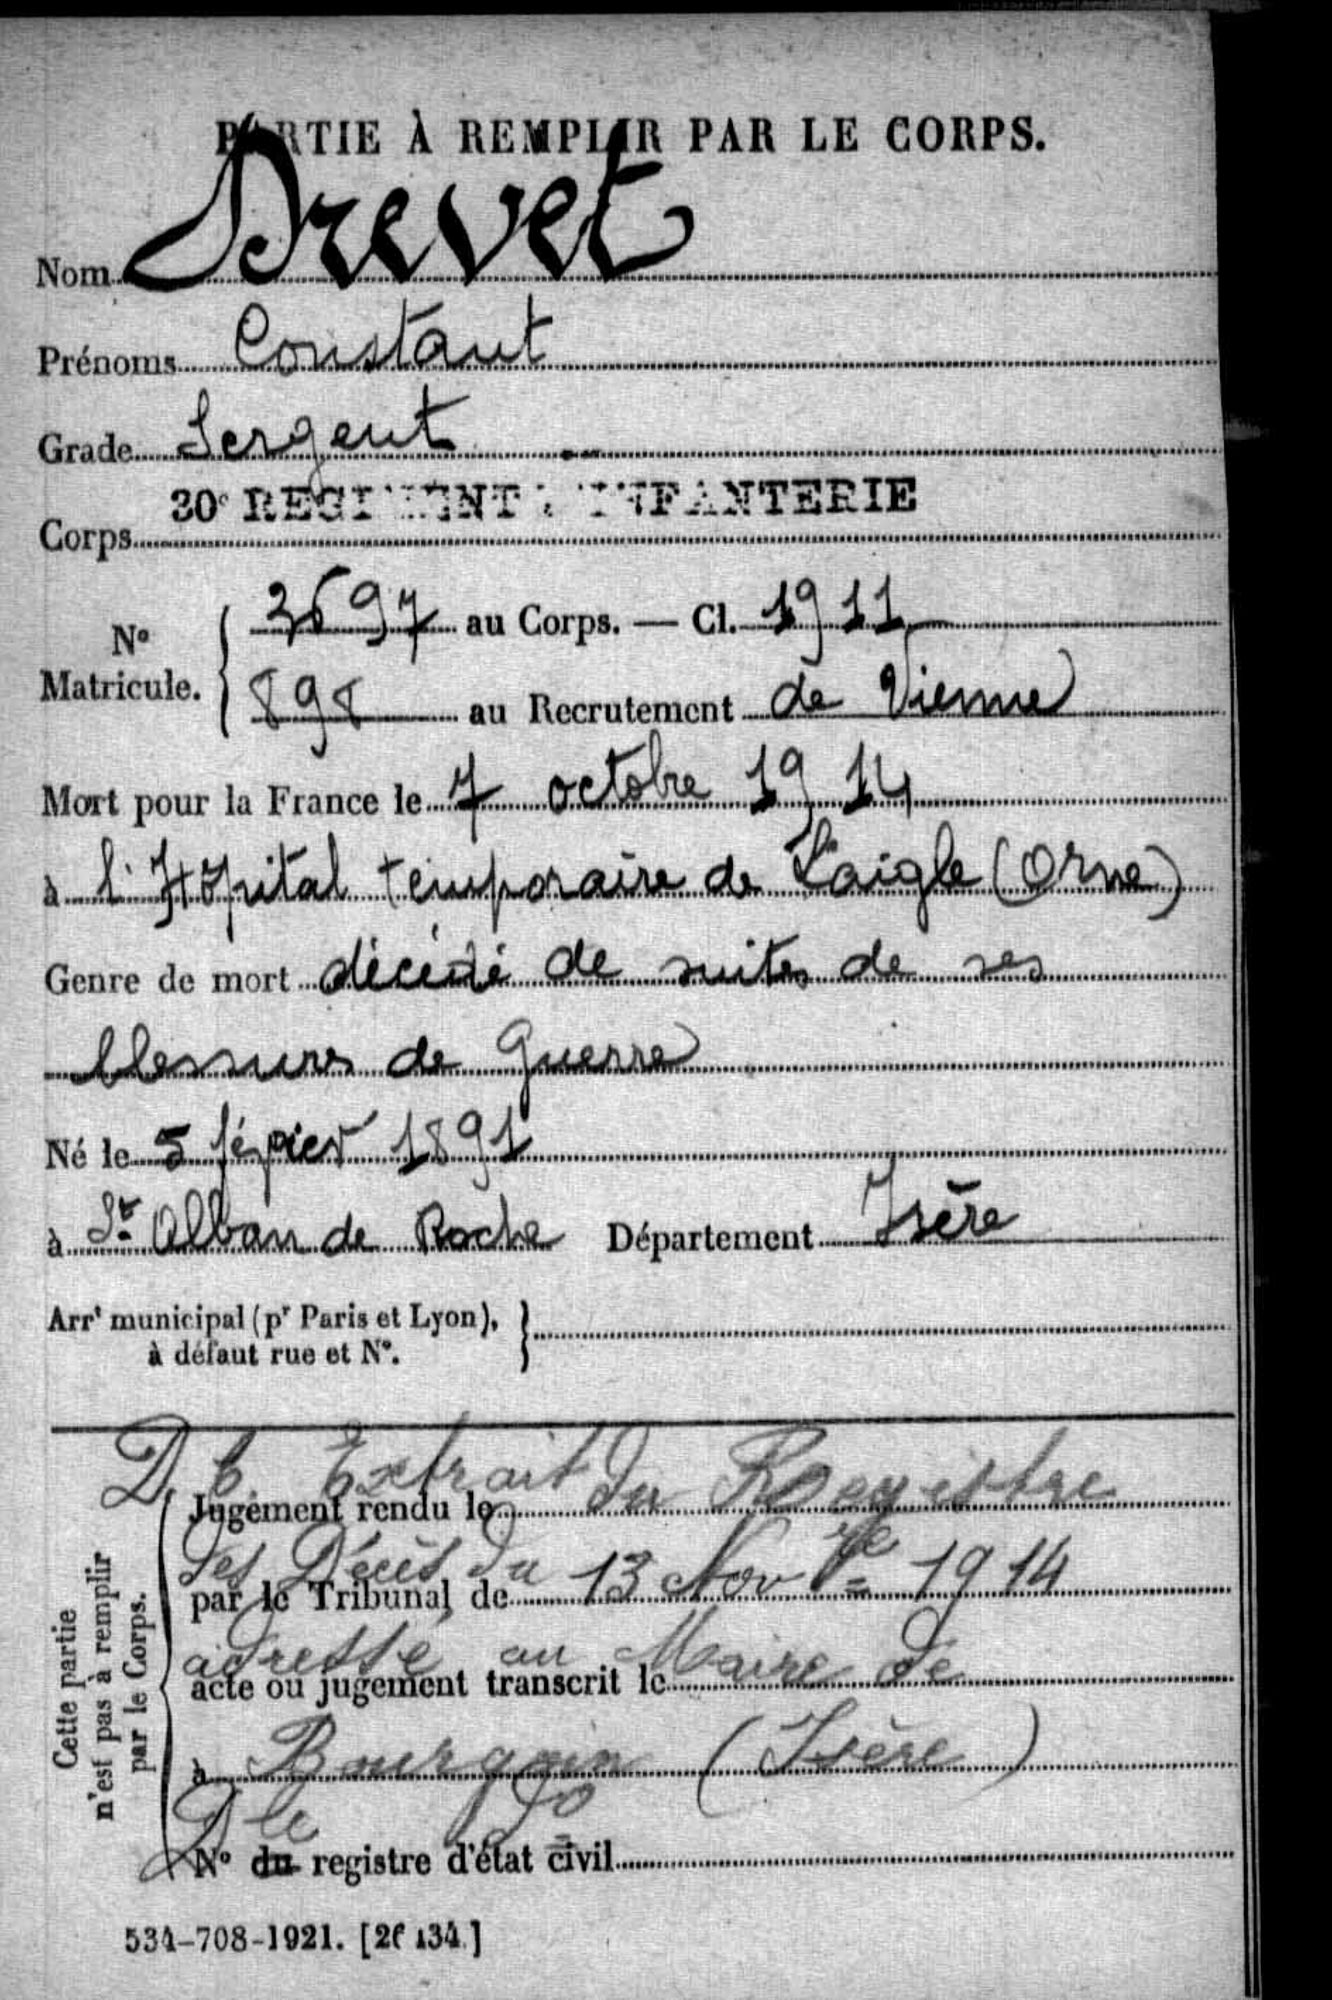 PARTIE À REMPLIR PAR LE CORPS.
Nom Drevet
Prénoms Constant
Grade Sergent
Corps 30e REGIMENT D'INFANTERIE
No Matricule. { 3697 au Corps. — Cl. 1911
898 au Recrutement de Vienne
Mort pour la France le 7 octobre 1914
à l'Hôpital temporaire de Laigle (Orne)
Genre de mort décédé de suites de ses
blessures de Guerre
Né le 5 février 1891
à St Alban de Roche Département Isère
Arrt municipal (pr Paris et Lyon), à défaut rue et No. }
D. C. Extrait du Registre
Jugement rendu le
des Décès du 13 Novbre 1914
par le Tribunal de
adressé au Maire de
acte ou jugement transcrit le
à Bourgoin (Isère)
D le
No du registre d'état civil
Cette partie n'est pas à remplir par le Corps.
534-708-1921. [26134.]